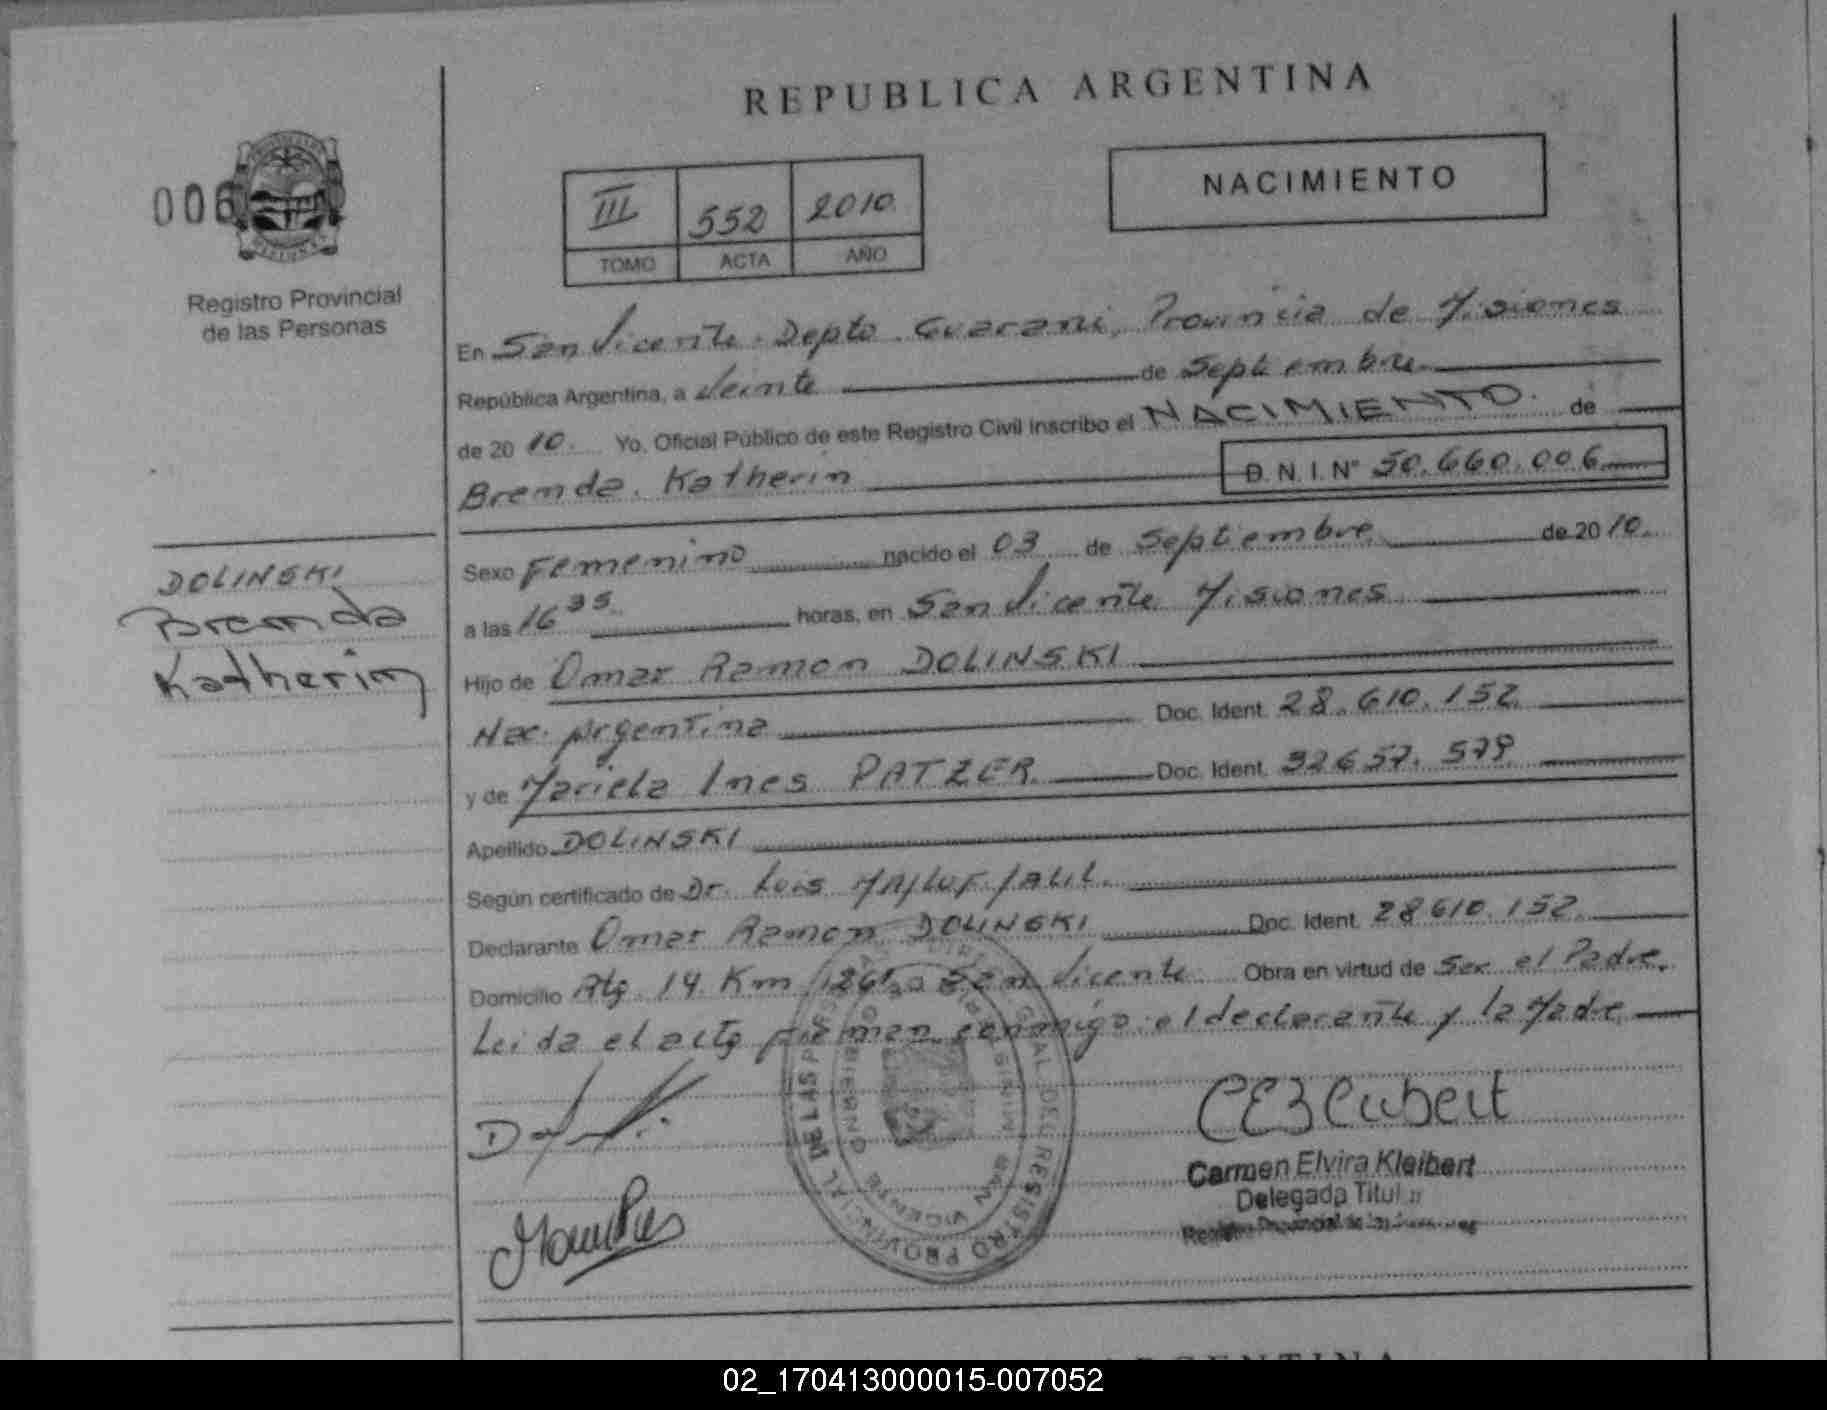 REPUBLICA ARGENTINA
006
III 552 2010
TOMO ACTA AÑO
NACIMIENTO
Registro Provincial
de las Personas
En San Vicente. Depto. Guarani, Provincia de Misiones
República Argentina, a Veinte de Septiembre
de 2010. Yo, Oficial Público de este Registro Civil inscribo el NACIMIENTO. de
Brenda. Katherin D. N. I. N° 50.660.006
DOLINSKI
Brenda
Katherin
Sexo Femenino nacido el 03 de Septiembre de 2010.
a las 16 35 horas, en San Vicente Misiones
Hijo de Omar Ramon DOLINSKI
Nac. Argentina Doc. Ident. 28.610.152
y de Mariela Ines PATZER Doc. Ident. 32657.579
Apellido DOLINSKI
Según certificado de Dr. Luis
Declarante Omar Ramon DOLINSKI Doc. Ident. 28610.152
Domicilio 14 Km San Vicente Obra en virtud de Ser el Padre.
Leida el acta firman conmigo el declarante y la Madre
Carmen Elvira Kleibert
Delegada Titul
Registro Provincial de las
REGISTRO PROVINCIAL DE LAS
SAN VICENTE
02_170413000015-007052